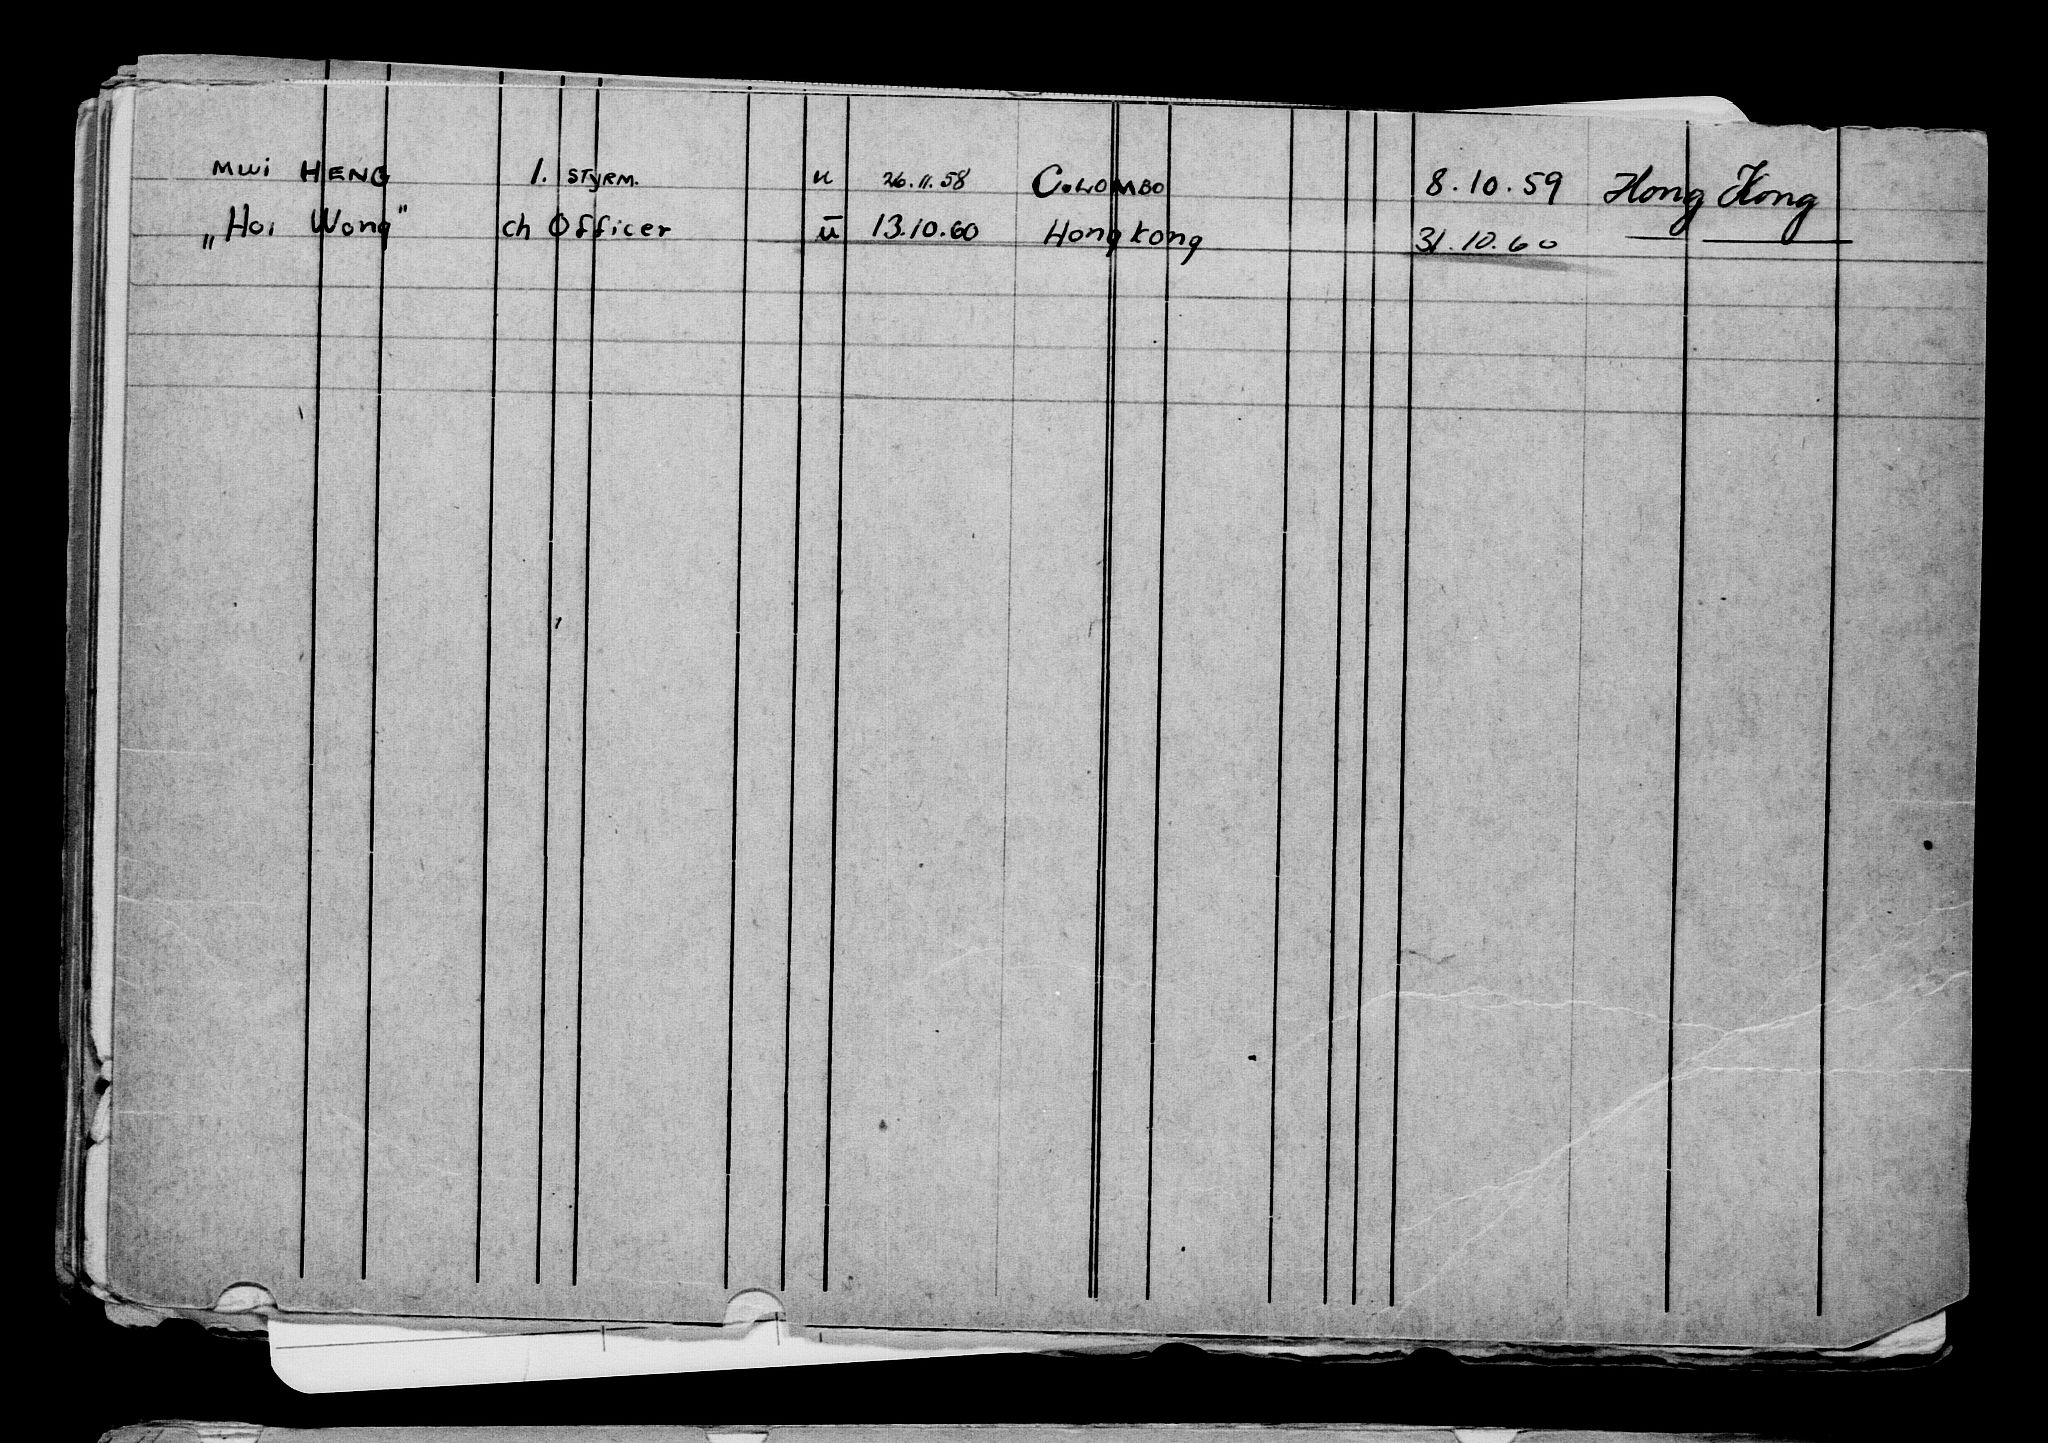 MUI HENG 1. STYRM. u 26.11.58 COLOMBO 8.10.59 Hong Kong
„Hoi Wong" ch Officer ū 13.10.60 Hongkong 31.10.60 — —